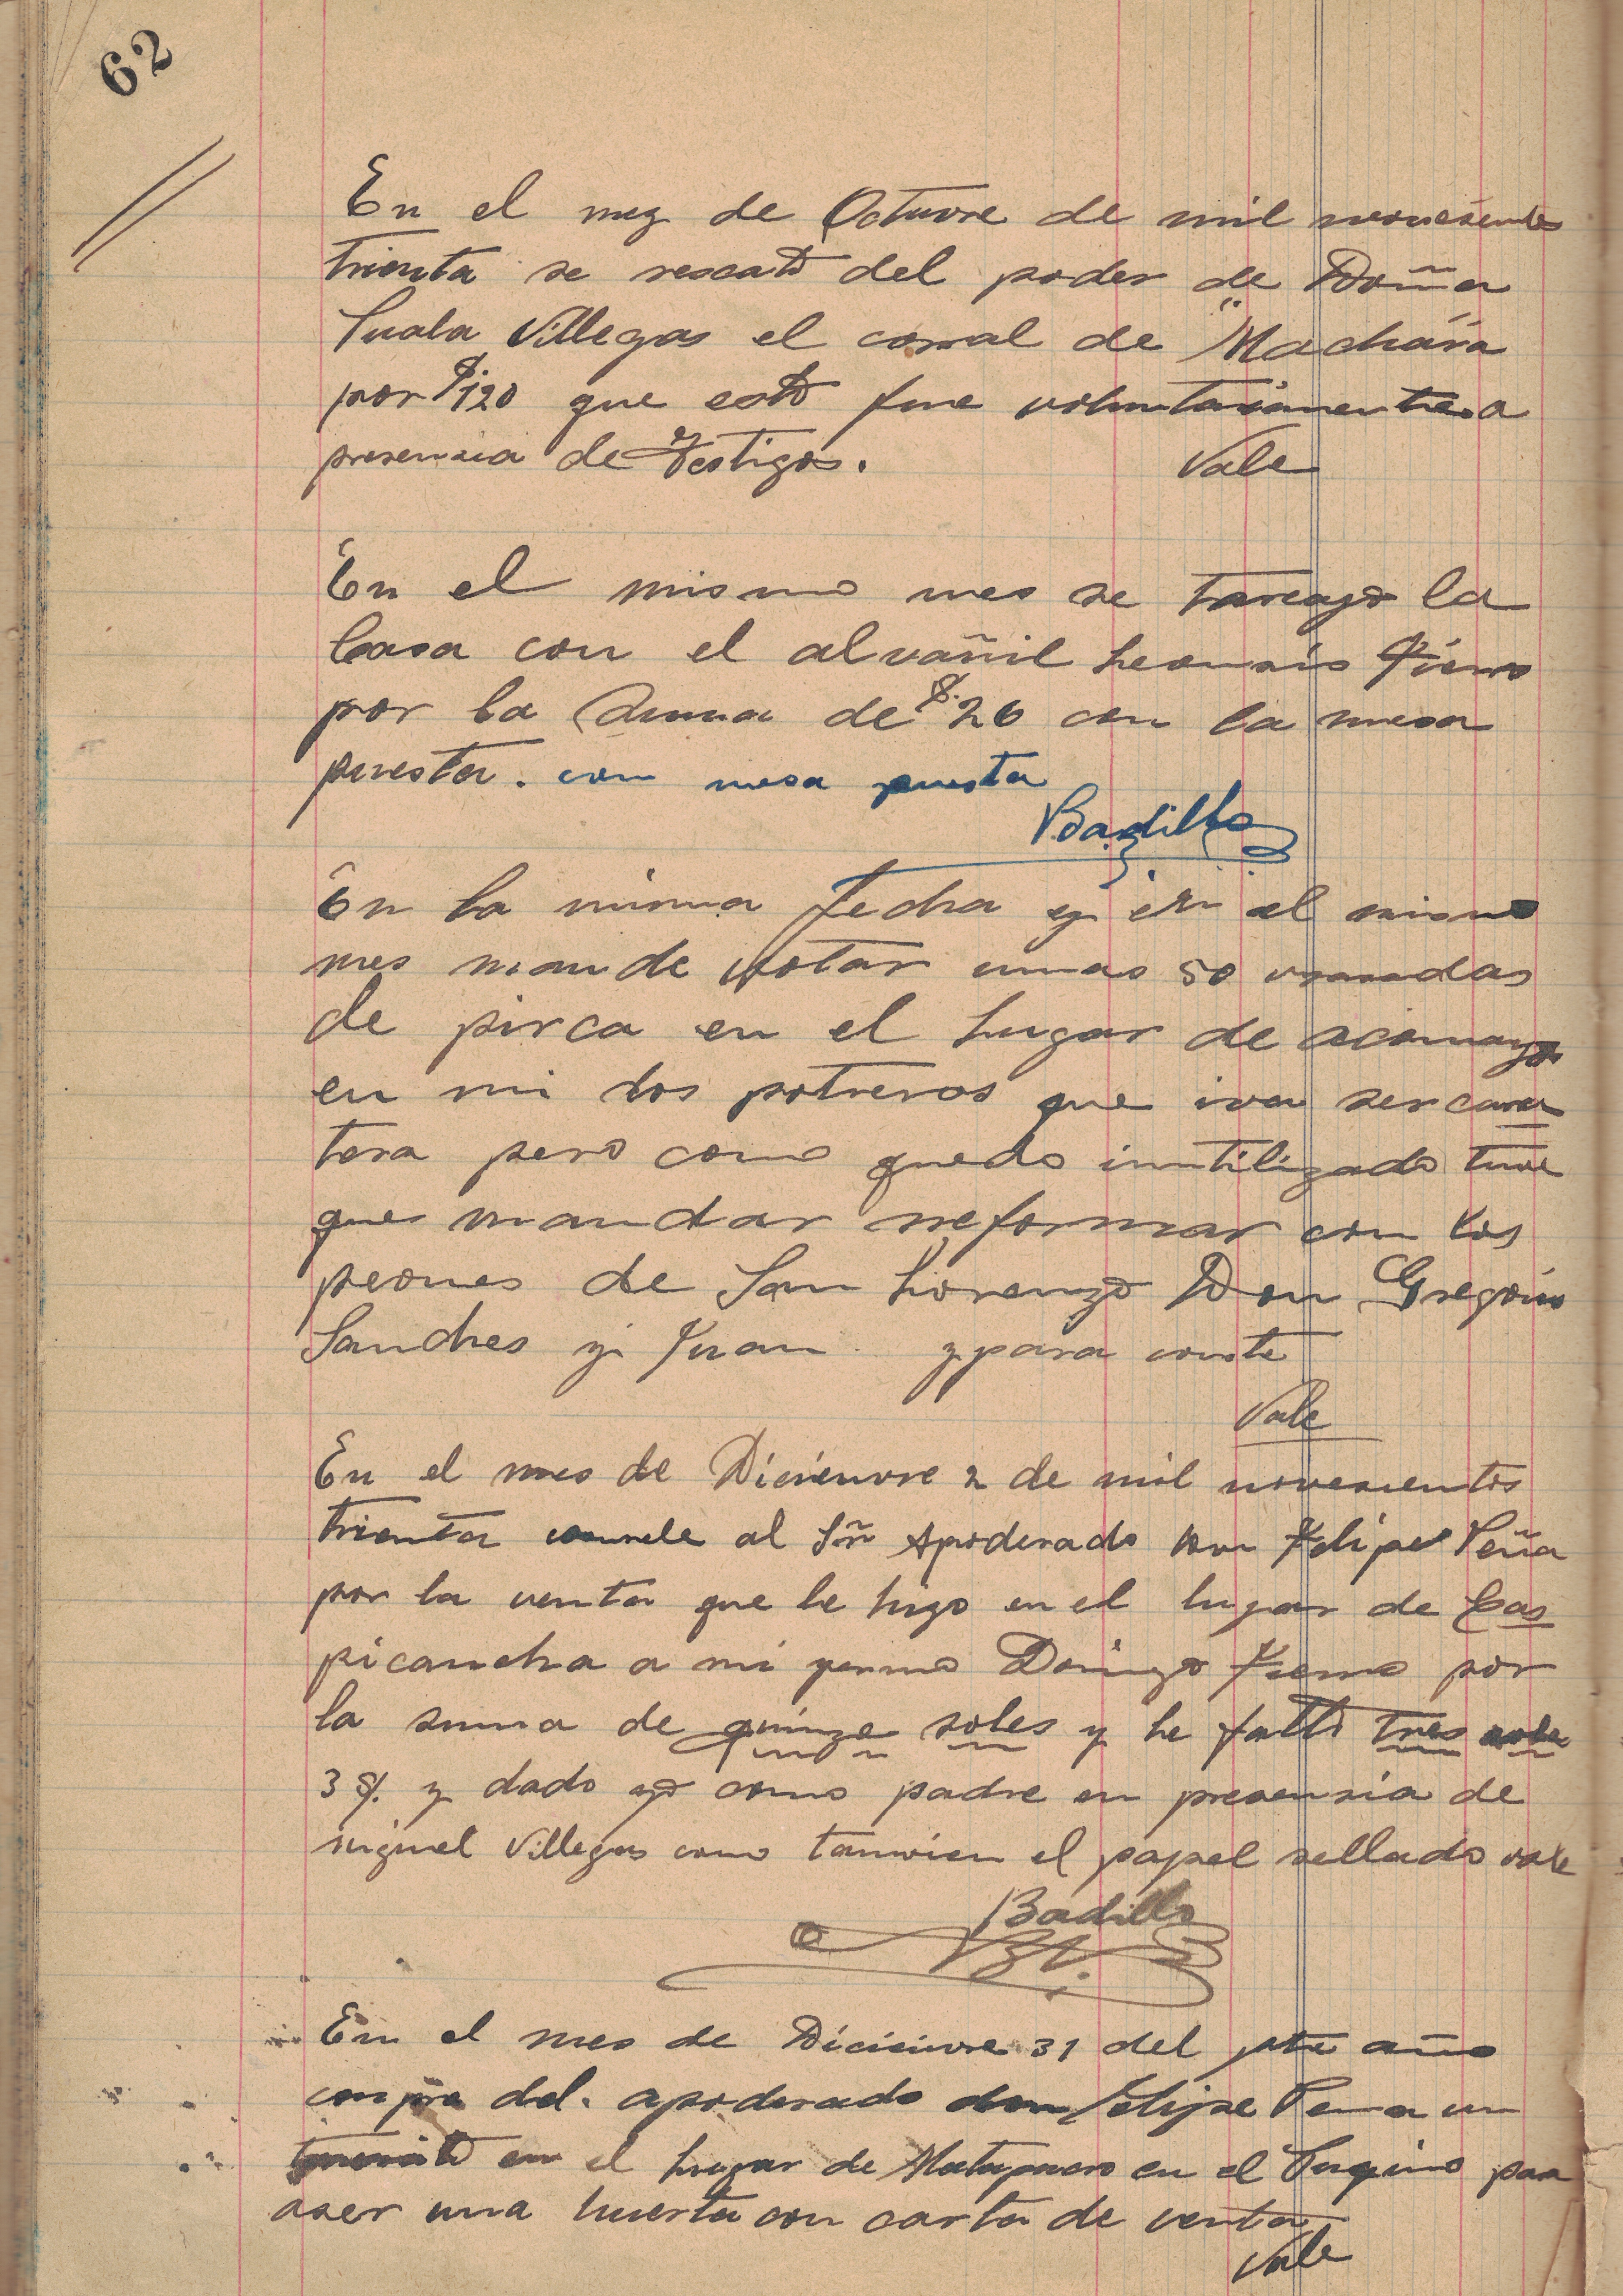 62
En el mez de Octuvre de mil novesientos
trienta se rescato del poder de Doña
Suala Villegas el corral de "Machária
por $.120 que esto fue voluntariamente a
presencia de Testigos. Vale
En el mismo mes se tareajo la
Casa con el alvañil
por la Suma de $.26 con la mesa
puesta. con mesa puesta
Badillo
En la misma fecha y en el mismo
mes mande votar unas 50 varadas
de pirca en el lugar de acomayo
en mi dos potreros que iva ser carre
tera pero como quedo inutilizado tuve
que mandar reformar con los
peones de San Lorenzo Don Gregorio
Sanches y Juan. y para conste
Vale
En el mes de Dicienvre 2 de mil novesientos
trienta al Sñr Apoderado Don Felipe Peña
por la venta que le hizo en el lugar de Cas
picancha a mi yerno Domingo por
la suma de quinze soles y le falto tres soles
3 $. y dado yo como padre en presensia de
miguel Villegas como tanvien el papel sellado vale
Badillo
En el mes de Dicienvre 31 del pte año
compre del. apoderado don Felipe Pena un
en el lugar de en el para
aser una huerta con carta de venta
Vale